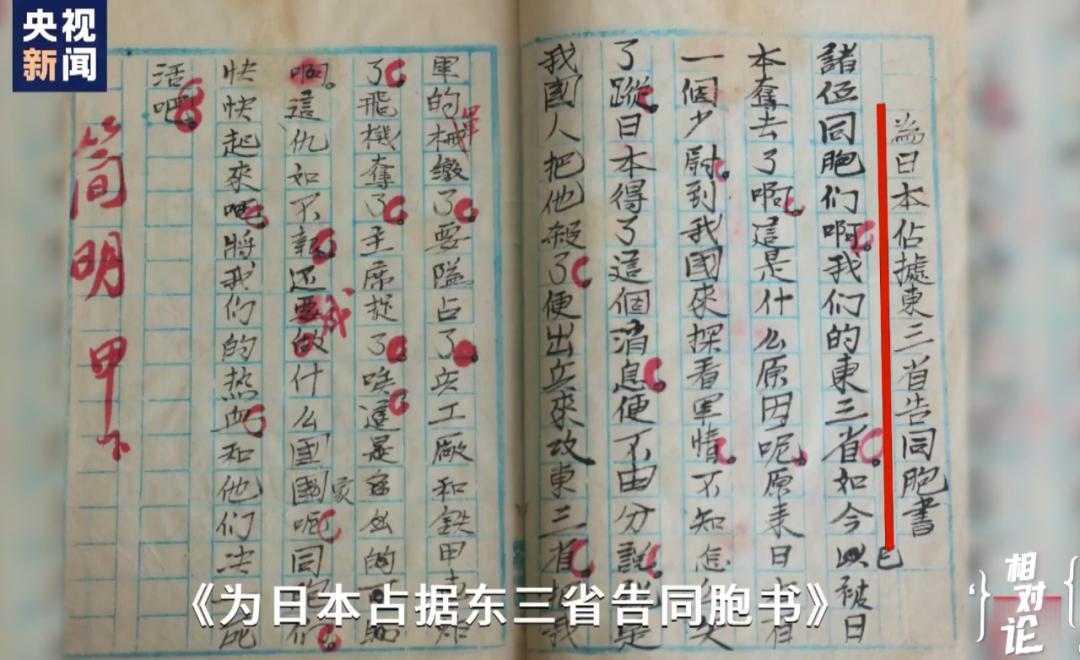 央视
新闻
為日本佔據東三省告同胞書
諸位同胞们啊。我们的東三省。如今已被日
本奪去了啊。這是什么原因呢。原来日本有
一個少尉。到我國來探看軍情。不知怎么失
了蹤。日本得了這個消息。便不由分説。説是
我國人把他殺了。便出兵來攻東三省。我
軍的械繳了。要隘占了。兵工廠和鉄甲車炸
了。飛機奪了。主席捉了。唉。這是
啊。這仇如不報。还成做什么國家呢。同胞们
快快起來吧。將我们的热血。和他们决一死
活吧。
簡明 甲下
《为日本占据东三省告同胞书》
相对论